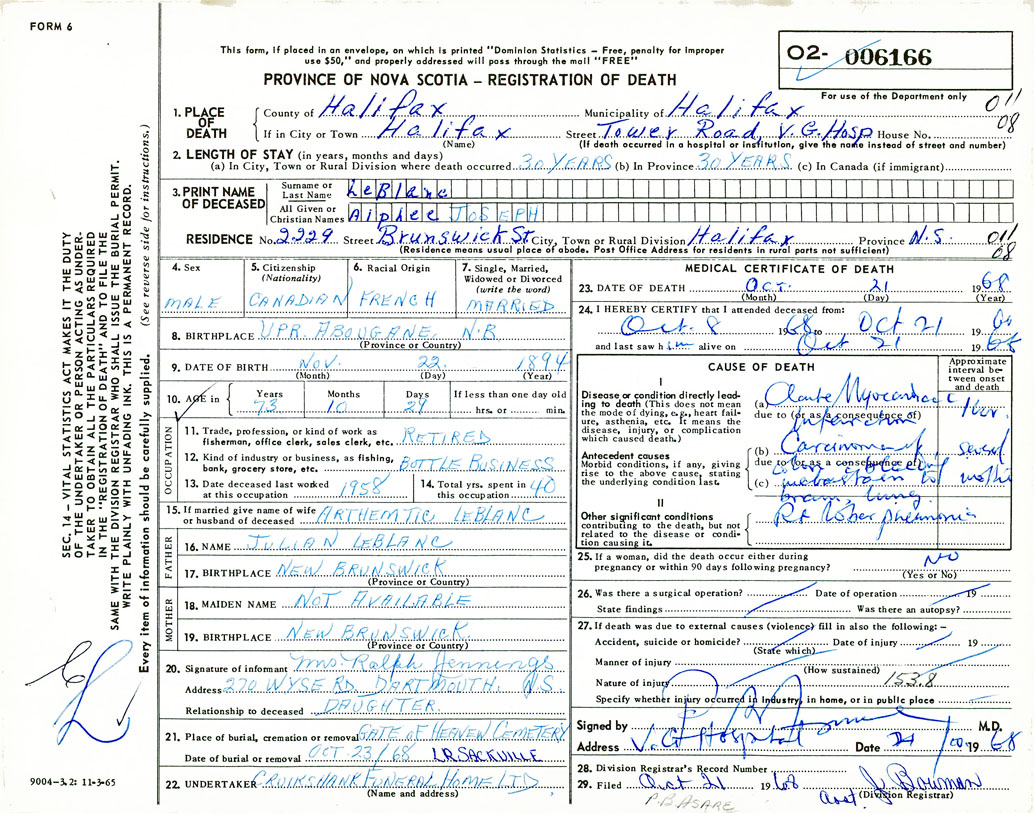 FORM 6
This form, if placed in an envelope, on which is printed "Dominion Statistics – Free, penalty for improper
use $50," and properly addressed will pass through the mail "FREE"
PROVINCE OF NOVA SCOTIA – REGISTRATION OF DEATH
O2- 006166
For use of the Department only
011
08
1. PLACE OF DEATH
County of Halifax Municipality of Halifax
If in City or Town Halifax Street Tower Road, V.G. Hosp House No.
(Name) (If death occurred in a hospital or institution, give the name instead of street and number)
2. LENGTH OF STAY (in years, months and days)
(a) In City, Town or Rural Division where death occurred 30 YEARS (b) In Province 30 YEARS (c) In Canada (if immigrant)
3. PRINT NAME OF DECEASED
Surname or Last Name LeBlanc
All Given or Christian Names Alphee JOSEPH
RESIDENCE No. 2229 Street Brunswick St City, Town or Rural Division Halifax Province N.S.
(Residence means usual place of abode. Post Office Address for residents in rural parts not sufficient)
011
08
4. Sex
MALE
5. Citizenship
(Nationality)
CANADIAN
6. Racial Origin
FRENCH
7. Single, Married,
Widowed or Divorced
(write the word)
MARRIED
8. BIRTHPLACE UPR. ABOUGANE. N.B
(Province or Country)
9. DATE OF BIRTH NOV. 22. 1894
(Month) (Day) (Year)
10. AGE in
Years Months Days If less than one day old
73 10 29 hrs. or min.
OCCUPATION
11. Trade, profession, or kind of work as
fisherman, office clerk, sales clerk, etc. RETIRED
12. Kind of industry or business, as fishing,
bank, grocery store, etc. BOTTLE BUSINESS
13. Date deceased last worked
at this occupation 1958
14. Total yrs. spent in
this occupation 40
15. If married give name of wife
or husband of deceased ARTHEMTIC LEBLANC
FATHER
16. NAME JULIAN LEBLANC
17. BIRTHPLACE NEW BRUNSWICK
(Province or Country)
MOTHER
18. MAIDEN NAME NOT AVAILABLE
19. BIRTHPLACE NEW BRUNSWICK.
(Province or Country)
20. Signature of informant Mrs Ralph Jennings
Address 270 WYSE RD. DARTMOUTH. N.S.
Relationship to deceased DAUGHTER.
21. Place of burial, cremation or removal GATE OF HEAVEN CEMETERY
Date of burial or removal OCT 23/68 LR. SACKVILLE
22. UNDERTAKER CRUIKSHANK FUNERAL HOME LTD
(Name and address)
MEDICAL CERTIFICATE OF DEATH
23. DATE OF DEATH Oct. 21 1968
(Month) (Day) (Year)
24. I HEREBY CERTIFY that I attended deceased from:
Oct. 8 1968 to Oct 21 19 68
and last saw him alive on Oct 21 19 68
CAUSE OF DEATH
Approximate
interval be-
tween onset
and death
I
Disease or condition directly lead-
ing to death (This does not mean
the mode of dying, e.g., heart fail-
ure, asthenia, etc. It means the
disease, injury, or complication
which caused death.)
(a) Acute Myocardial 1 hr.
due to (or as a consequence of)
Infarction
Antecedent causes
Morbid conditions, if any, giving
rise to the above cause, stating
the underlying condition last.
(b) Carcinoma of several
due to (or as a consequence of)
(c) metastasis to
brain, lung.
II
Other significant conditions
contributing to the death, but not
related to the disease or condi-
tion causing it.
Rt lober pneumonia
25. If a woman, did the death occur either during
pregnancy or within 90 days following pregnancy? NO
(Yes or No)
26. Was there a surgical operation? Date of operation 19
State findings Was there an autopsy?
27. If death was due to external causes (violence) fill in also the following: –
Accident, suicide or homicide? Date of injury 19
(State which)
Manner of injury
(How sustained)
Nature of injury 153.8
Specify whether injury occurred in industry, in home, or in public place
Signed by M.D.
Address V.G. Hospital Date 21/10 1968
28. Division Registrar's Record Number
29. Filed Oct 21 1968 J. Bowman
P.B. ASARE Asst. (Division Registrar)
SEC. 14 – VITAL STATISTICS ACT MAKES IT THE DUTY
OF THE UNDERTAKER OR PERSON ACTING AS UNDER-
TAKER TO OBTAIN ALL THE PARTICULARS REQUIRED
IN THE "REGISTRATION OF DEATH" AND TO FILE THE
SAME WITH THE DIVISION REGISTRAR WHO SHALL ISSUE THE BURIAL PERMIT.
WRITE PLAINLY WITH UNFADING INK. THIS IS A PERMANENT RECORD.
Every item of information should be carefully supplied. (See reverse side for instructions.)
9004-3.2: 11-3-65